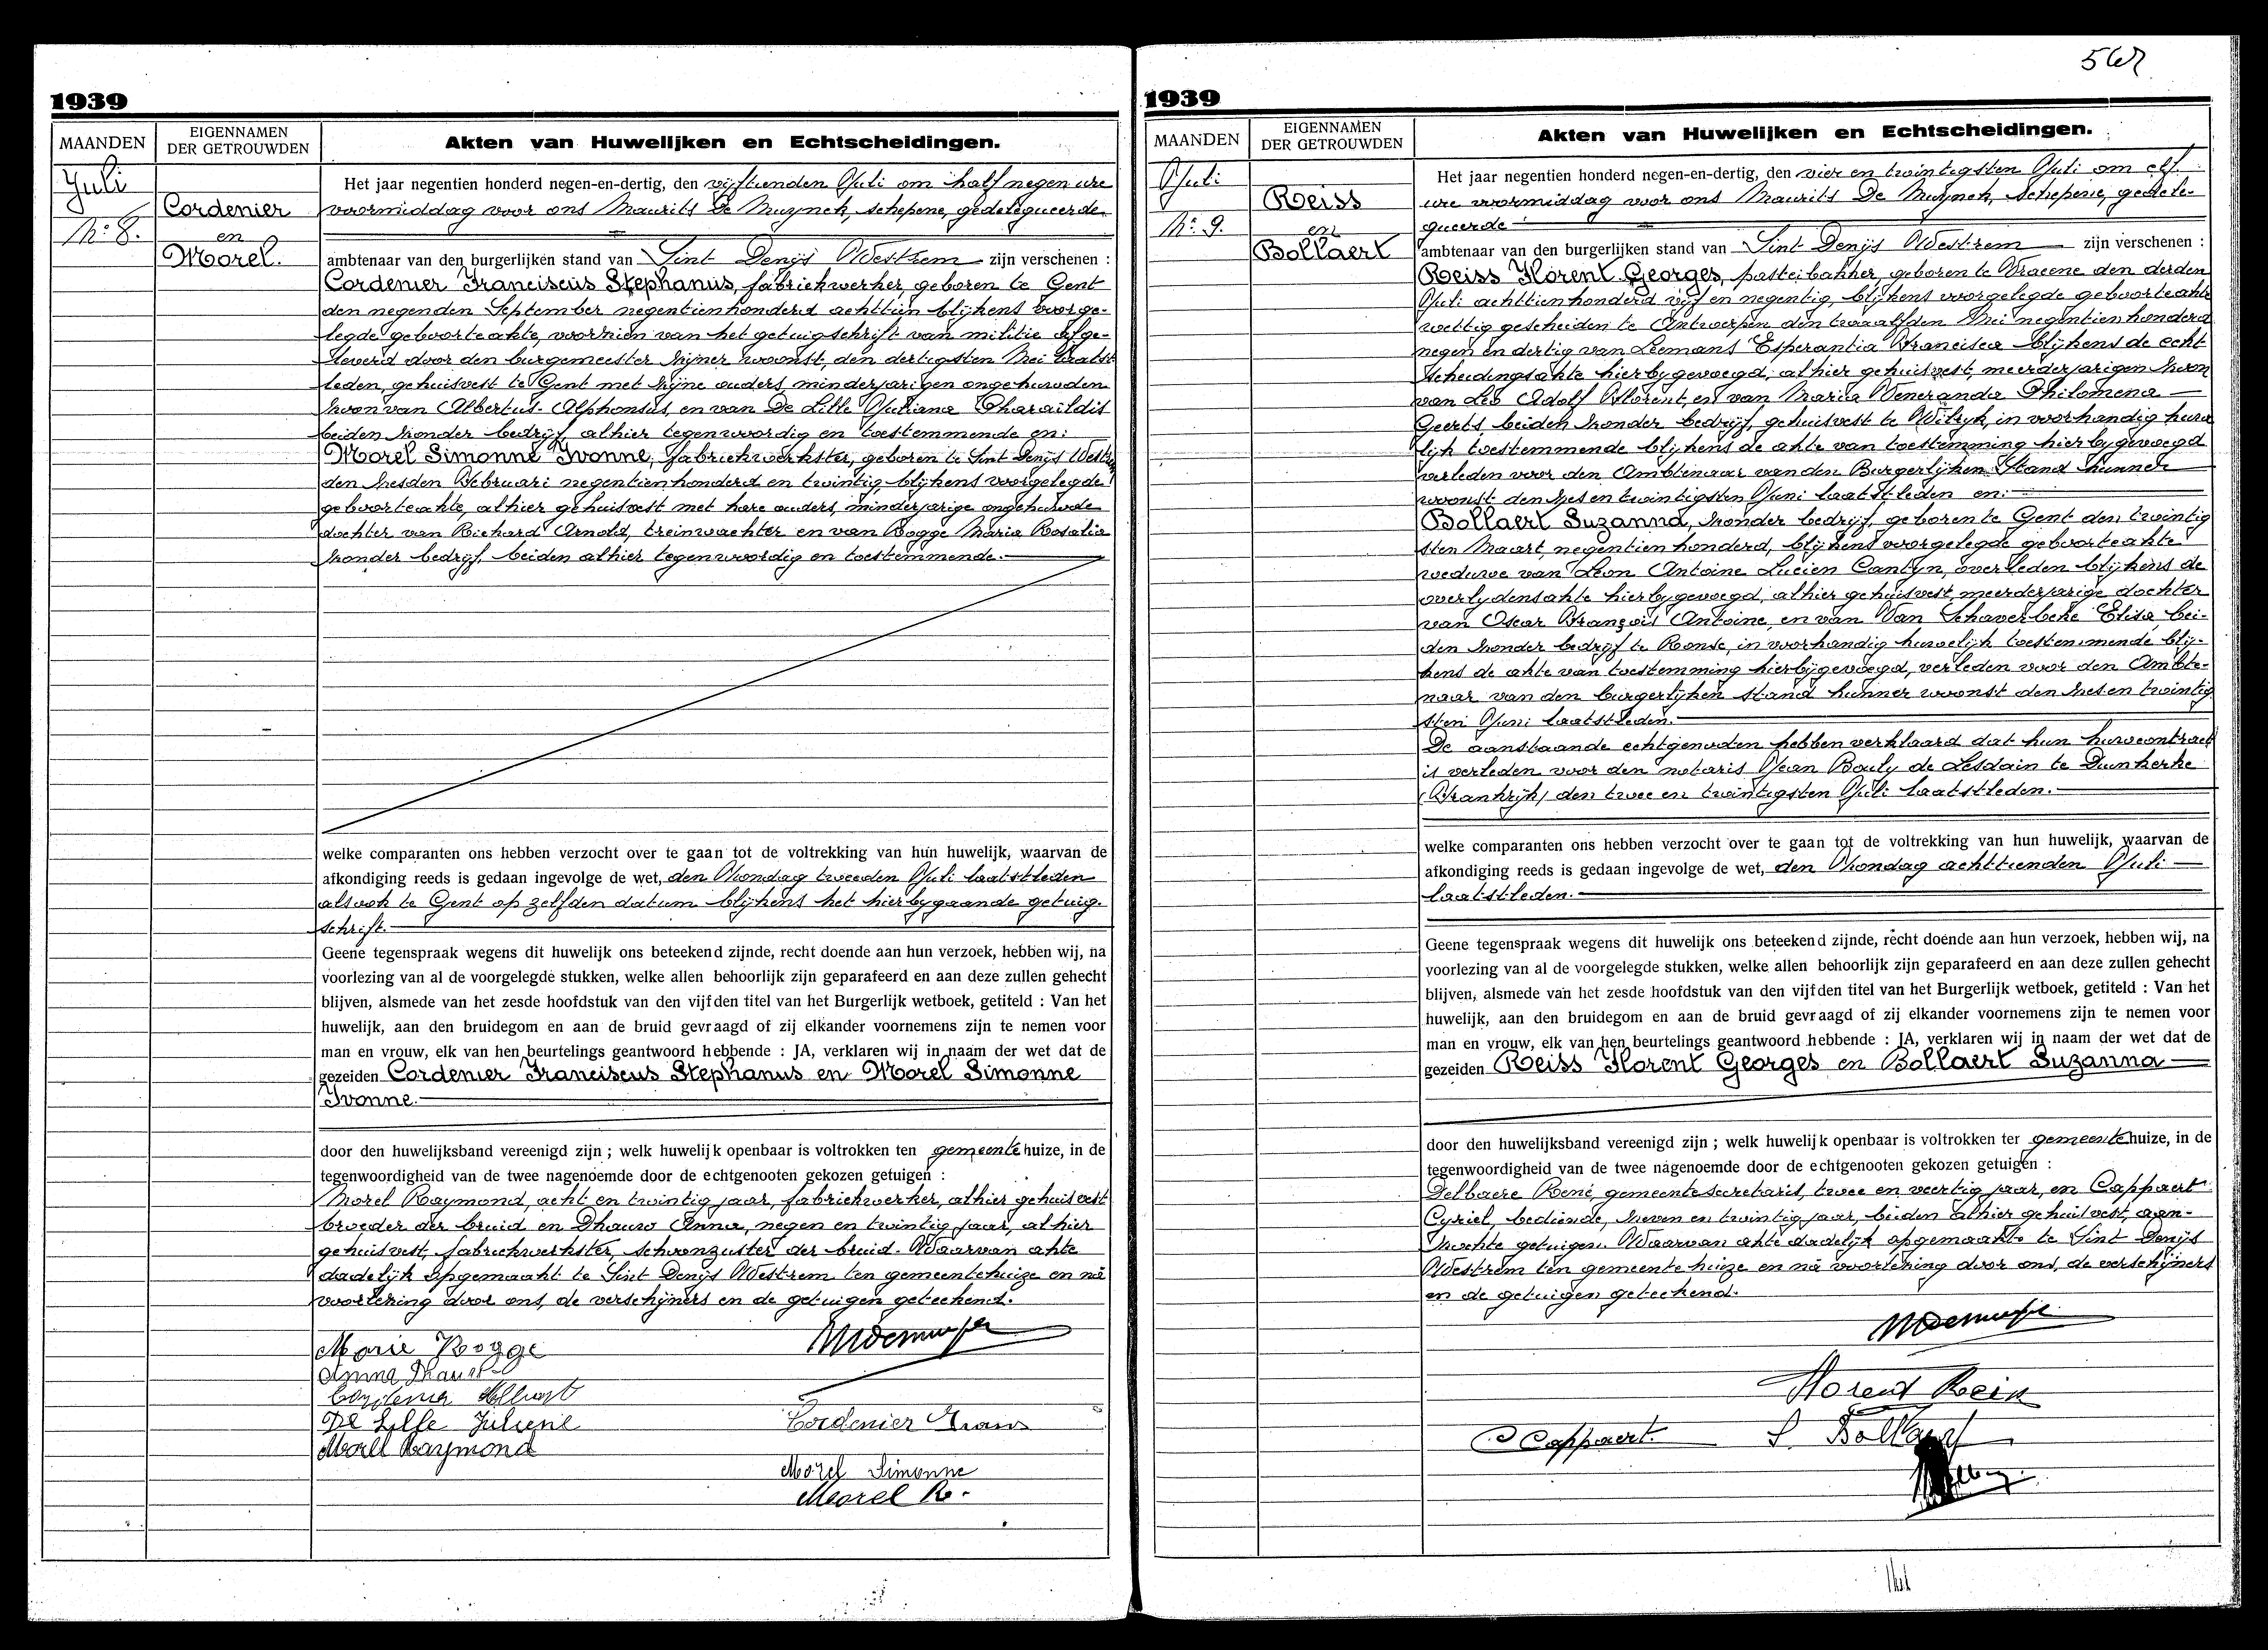 567
1939
MAANDEN
EIGENNAMEN
DER GETROUWDEN
Akten van Huwelijken en Echtscheidingen.
Juli
No 8.
Cordenier
en
Morel.
Het jaar negentien honderd negen-en-dertig, den vijftienden Juli om half negen ure
voormiddag voor ons Maurits De Muynck, schepene, gedelegueerde
ambtenaar van den burgerlijken stand van Sint Denijs Westrem zijn verschenen :
Cordenier Franciscus Stephanus, fabriekwerker, geboren te Gent
den negenden September negentienhonderd achttien blijkens voorge-
legde geboorteakte, voorzien van het getuigschrift van militie afge-
leverd door den burgemeester zijner woonst, den dertigsten Mei laatst
leden, gehuisvest te Gent met zijne ouders, minderjarigen ongehuwden
zoon van Albertus Alphonsus, en van De Lille Juliana Pharaildis
beiden zonder bedrijf, alhier tegenwoordig en toestemmende en:
Morel Simonne Ivonne, fabriekwerkster, geboren te Sint Denijs Westrem
den zesden Februari negentienhonderd en twintig, blijkens voorgelegde
geboorteakte, alhier gehuisvest met hare ouders, minderjarige ongehuwde
dochter van Richard Arnold, treinwachter en van Rogge Maria Rosalia
zonder bedrijf, beiden alhier tegenwoordig en toestemmende.
welke comparanten ons hebben verzocht over te gaan tot de voltrekking van hun huwelijk, waarvan de
afkondiging reeds is gedaan ingevolge de wet, den Zondag tweeden Juli laatstleden
alsook te Gent op zelfden datum blijkens het hierbijgaande getuig-
schrift.
Geene tegenspraak wegens dit huwelijk ons beteekend zijnde, recht doende aan hun verzoek, hebben wij, na
voorlezing van al de voorgelegde stukken, welke allen behoorlijk zijn geparafeerd en aan deze zullen gehecht
blijven, alsmede van het zesde hoofdstuk van den vijfden titel van het Burgerlijk wetboek, getiteld : Van het
huwelijk, aan den bruidegom en aan de bruid gevraagd of zij elkander voornemens zijn te nemen voor
man en vrouw, elk van hen beurtelings geantwoord hebbende : JA, verklaren wij in naam der wet dat de
gezeiden Cordenier Franciscus Stephanus en Morel Simonne
Ivonne.
door den huwelijksband vereenigd zijn ; welk huwelijk openbaar is voltrokken ten gemeentehuize, in de
tegenwoordigheid van de twee nagenoemde door de echtgenooten gekozen getuigen :
Morel Raymond, acht en twintig jaar, fabriekwerker, alhier gehuisvest
broeder der bruid en Dhauw Anna, negen en twintig jaar, alhier
gehuisvest, fabriekwerkster, schoonzuster der bruid. Waarvan akte
dadelijk opgemaakt te Sint Denijs Westrem ten gemeentehuize en na
voorlezing door ons, de verschijners en de getuigen geteekend.
Marie Rogge
Anna Dhauw
Cordenier Albert
De Lille Juliene
Morel Raymond
Cordenier Frans
Morel Simonne
Morel R.
1939
MAANDEN
EIGENNAMEN
DER GETROUWDEN
Akten van Huwelijken en Echtscheidingen.
Juli
No 9.
Reiss
en
Bollaert
Het jaar negentien honderd negen-en-dertig, den vier en twintigsten Juli om elf
ure voormiddag voor ons Maurits De Muynck, schepene, gedele-
gueerde
ambtenaar van den burgerlijken stand van Sint Denijs Westrem zijn verschenen :
Reiss Florent Georges, pasteibakker, geboren te Vracene den derden
Juli achttienhonderd vijf en negentig, blijkens voorgelegde geboorteakte
wettig gescheiden te Antwerpen den twaalfden Mei negentienhonderd
negen en dertig van Leemans Esperantia Francisca blijkens de echt
scheidingsakte hierbijgevoegd, alhier gehuisvest, meerderjarigen zoon
van Leo Adolf Florent, en van Maria Veneranda Philomena
Geerts, beiden zonder bedrijf, gehuisvest te Wilryk, in voorhandig huwe
lijk toestemmende blijkens de akte van toestemming hierbijgevoegd
verleden voor den Ambtenaar van den Burgerlijken Stand hunner
woonst den zes en twintigsten Juni laatstleden en:
Bollaert Suzanna, zonder bedrijf, geboren te Gent den twintig
sten Maart negentien honderd, blijkens voorgelegde geboorteakte
weduwe van Leon Antoine Lucien Cantyn, overleden blijkens de
overlydensakte hierbijgevoegd, alhier gehuisvest, meerderjarige dochter
van Oscar François Antoine, en van Van Schaverbeke Elisa, bei-
den zonder bedrijf te Ronse, in voorhandig huwelijk toestemmende blij-
kens de akte van toestemming hierbijgevoegd, verleden voor den Ambte-
naar van den burgerlijken stand hunner woonst den zes en twintig
sten Juni laatstleden.
De aanstaande echtgenoten hebben verklaard dat hun huwcontract
is verleden voor den notaris Jean Bouly de Lesdain te Duinkerke
(Frankrijk) den twee en twintigsten Juli laatstleden.
welke comparanten ons hebben verzocht over te gaan tot de voltrekking van hun huwelijk, waarvan de
afkondiging reeds is gedaan ingevolge de wet, den Zondag achttienden Juli
laatstleden.
Geene tegenspraak wegens dit huwelijk ons beteekend zijnde, recht doende aan hun verzoek, hebben wij, na
voorlezing van al de voorgelegde stukken, welke allen behoorlijk zijn geparafeerd en aan deze zullen gehecht
blijven, alsmede van het zesde hoofdstuk van den vijfden titel van het Burgerlijk wetboek, getiteld : Van het
huwelijk, aan den bruidegom en aan de bruid gevraagd of zij elkander voornemens zijn te nemen voor
man en vrouw, elk van hen beurtelings geantwoord hebbende : JA, verklaren wij in naam der wet dat de
gezeiden Reiss Florent Georges en Bollaert Suzanna
door den huwelijksband vereenigd zijn ; welk huwelijk openbaar is voltrokken ter gemeentehuize, in de
tegenwoordigheid van de twee nagenoemde door de echtgenooten gekozen getuigen :
Delbaere René, gemeentesecretaris, twee en veertig jaar, en Cappaert
Cyriel, bediende, zeven en twintig jaar, beiden alhier gehuisvest, aan-
zochte getuigen. Waarvan akte dadelijk opgemaakt te Sint Denijs
Westrem ten gemeentehuize en na voorlezing door ons, de verschijners
en de getuigen geteekend.
Florent Reiss
C Cappaert. S. Bollaert